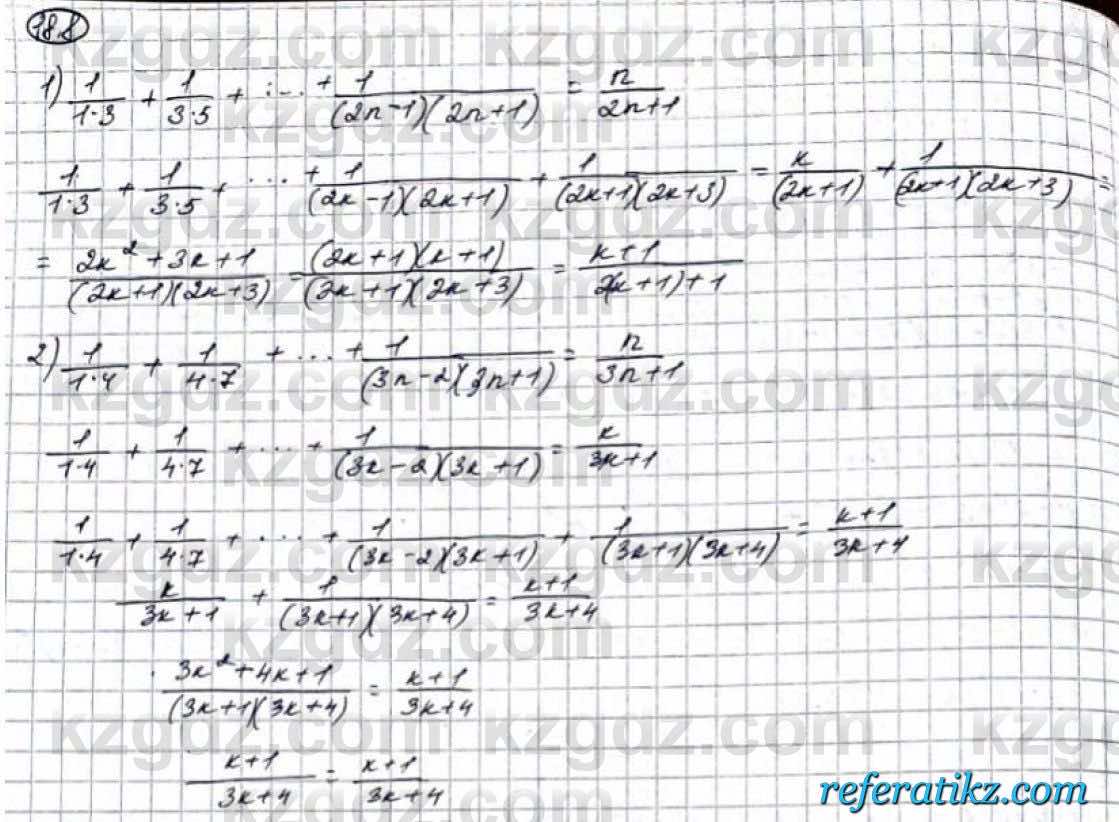 18.8
1) 1/(1·3) + 1/(3·5) + ... + 1/((2n-1)(2n+1)) = n/(2n+1)
1/(1·3) + 1/(3·5) + ... + 1/((2k-1)(2k+1)) + 1/((2k+1)(2k+3)) = k/(2k+1) + 1/((2k+1)(2k+3)) =
= (2k²+3k+1)/((2k+1)(2k+3)) = ((2k+1)(k+1))/((2k+1)(2k+3)) = (k+1)/(2(k+1)+1)
2) 1/(1·4) + 1/(4·7) + ... + 1/((3n-2)(3n+1)) = n/(3n+1)
1/(1·4) + 1/(4·7) + ... + 1/((3k-2)(3k+1)) = k/(3k+1)
1/(1·4) + 1/(4·7) + ... + 1/((3k-2)(3k+1)) + 1/((3k+1)(3k+4)) = (k+1)/(3k+4)
k/(3k+1) + 1/((3k+1)(3k+4)) = (k+1)/(3k+4)
(3k²+4k+1)/((3k+1)(3k+4)) = (k+1)/(3k+4)
(k+1)/(3k+4) = (k+1)/(3k+4)
kzgdz.com
referatikz.com